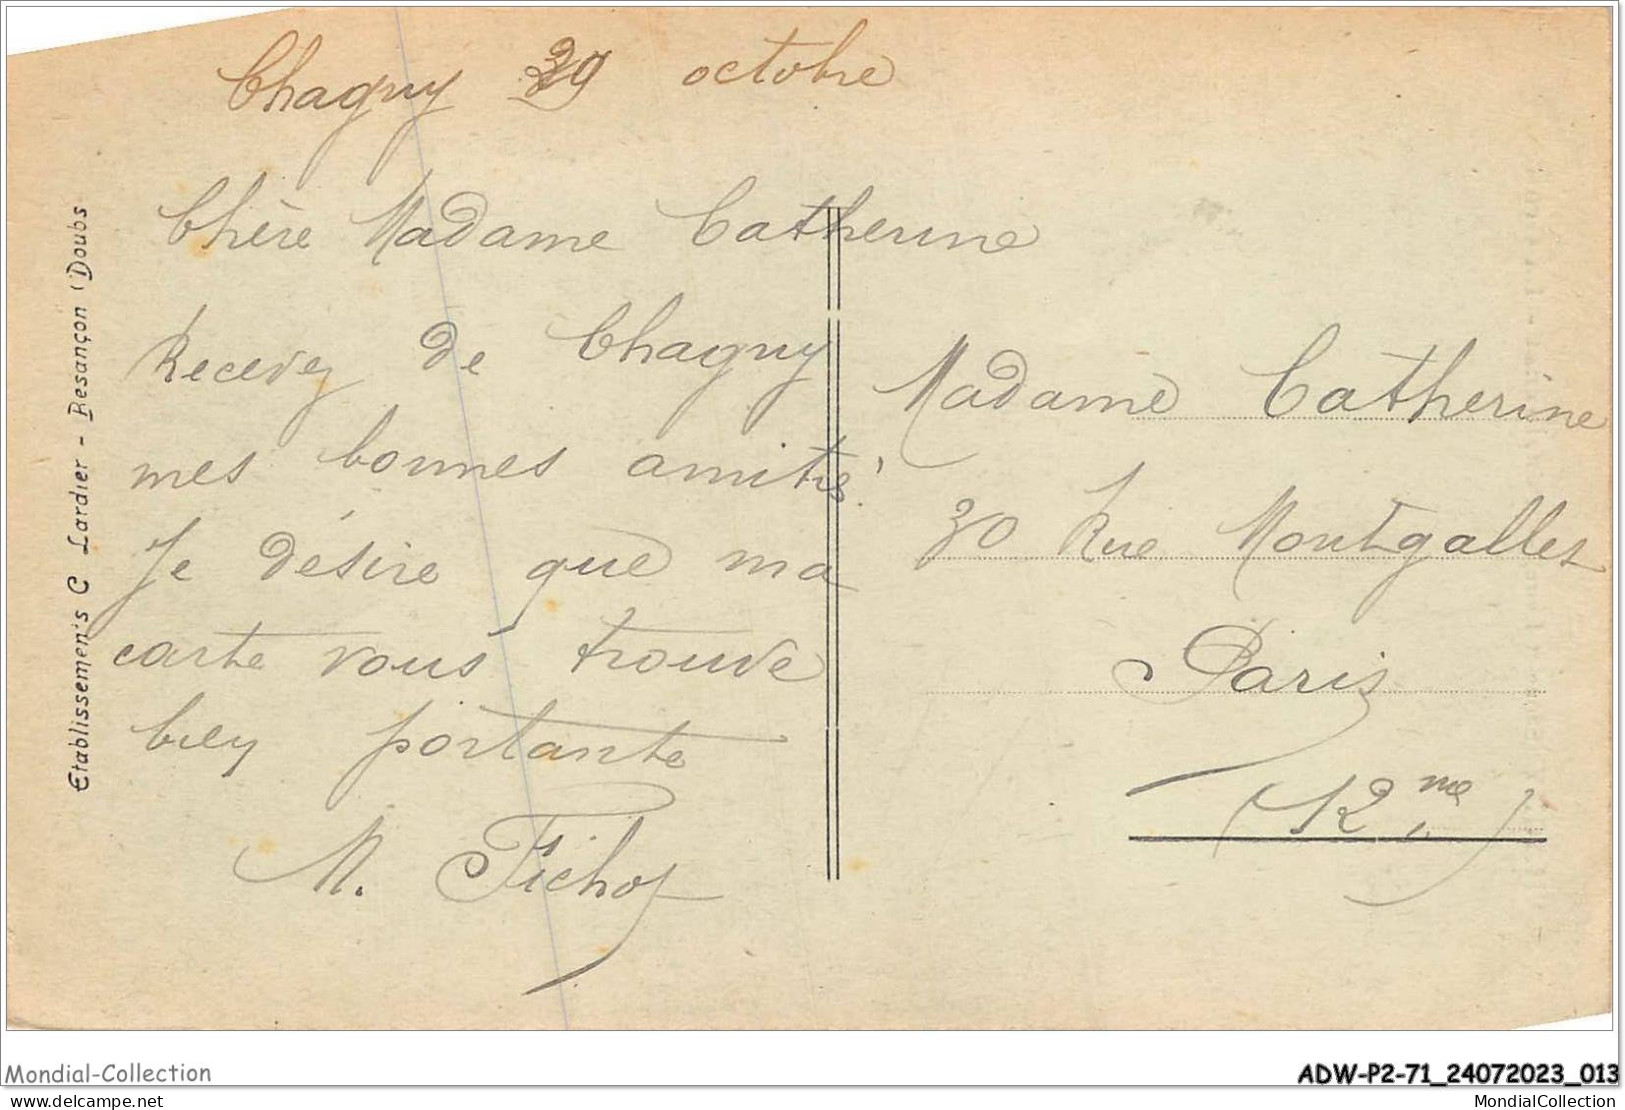 Chagny 29 octobre
Chère Madame Catherine
Recevez de Chagny
mes bonnes amitiés
Je désire que ma
carte vous trouve
bien portante
M. Fichot
Madame Catherine
30 Rue Montgallet
Paris
(12me)
Etablissements C Lardier - Besançon (Doubs
Mondial-Collection
ADW-P2-71_24072023_013
delcampe.net
MondialCollection